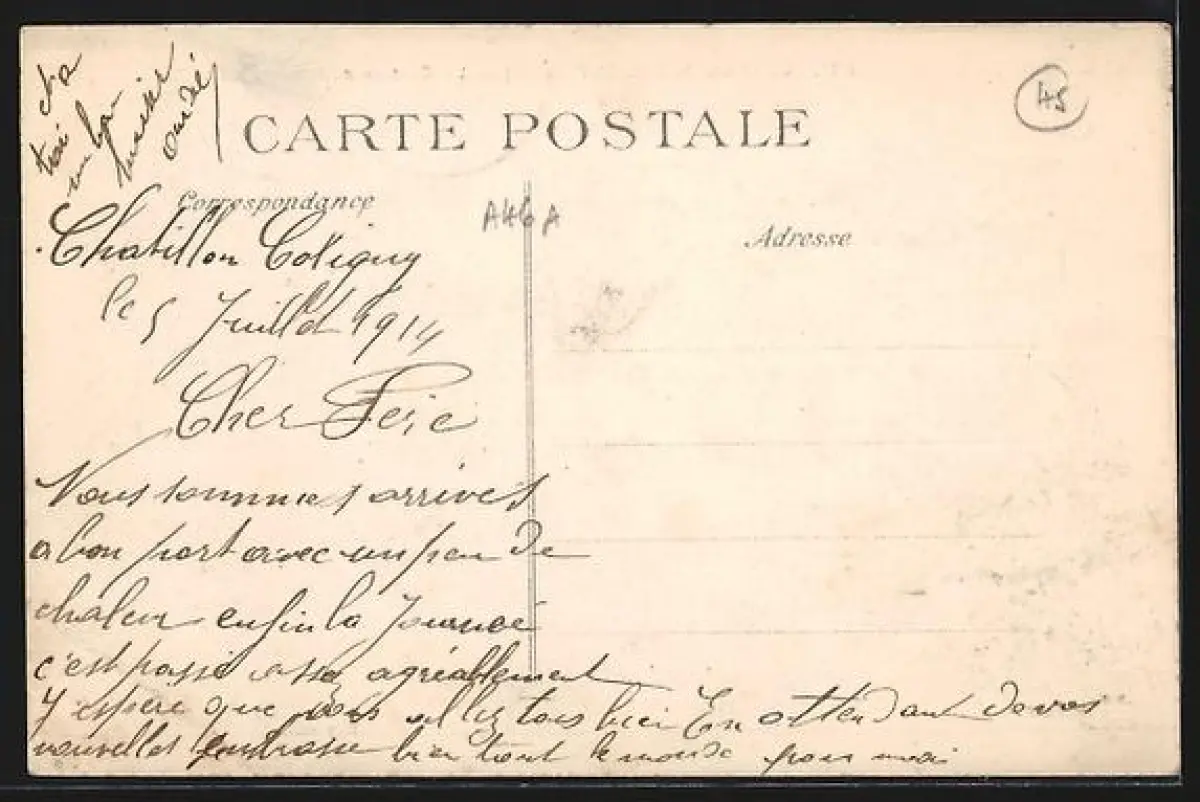 CARTE POSTALE
45
Correspondance
A46A
Adresse
Chatillon Coligny
le 5 Juillet 1914
Cher Père
Nous sommes arrivés
a bon port avec un peu de
chaleur enfin la Journeé
c'est passé assé agréablement
J'espere que vous allez tous bien En attendant de vos
nouvelles Embrasse bien tout le monde pour moi
un bon
baisér